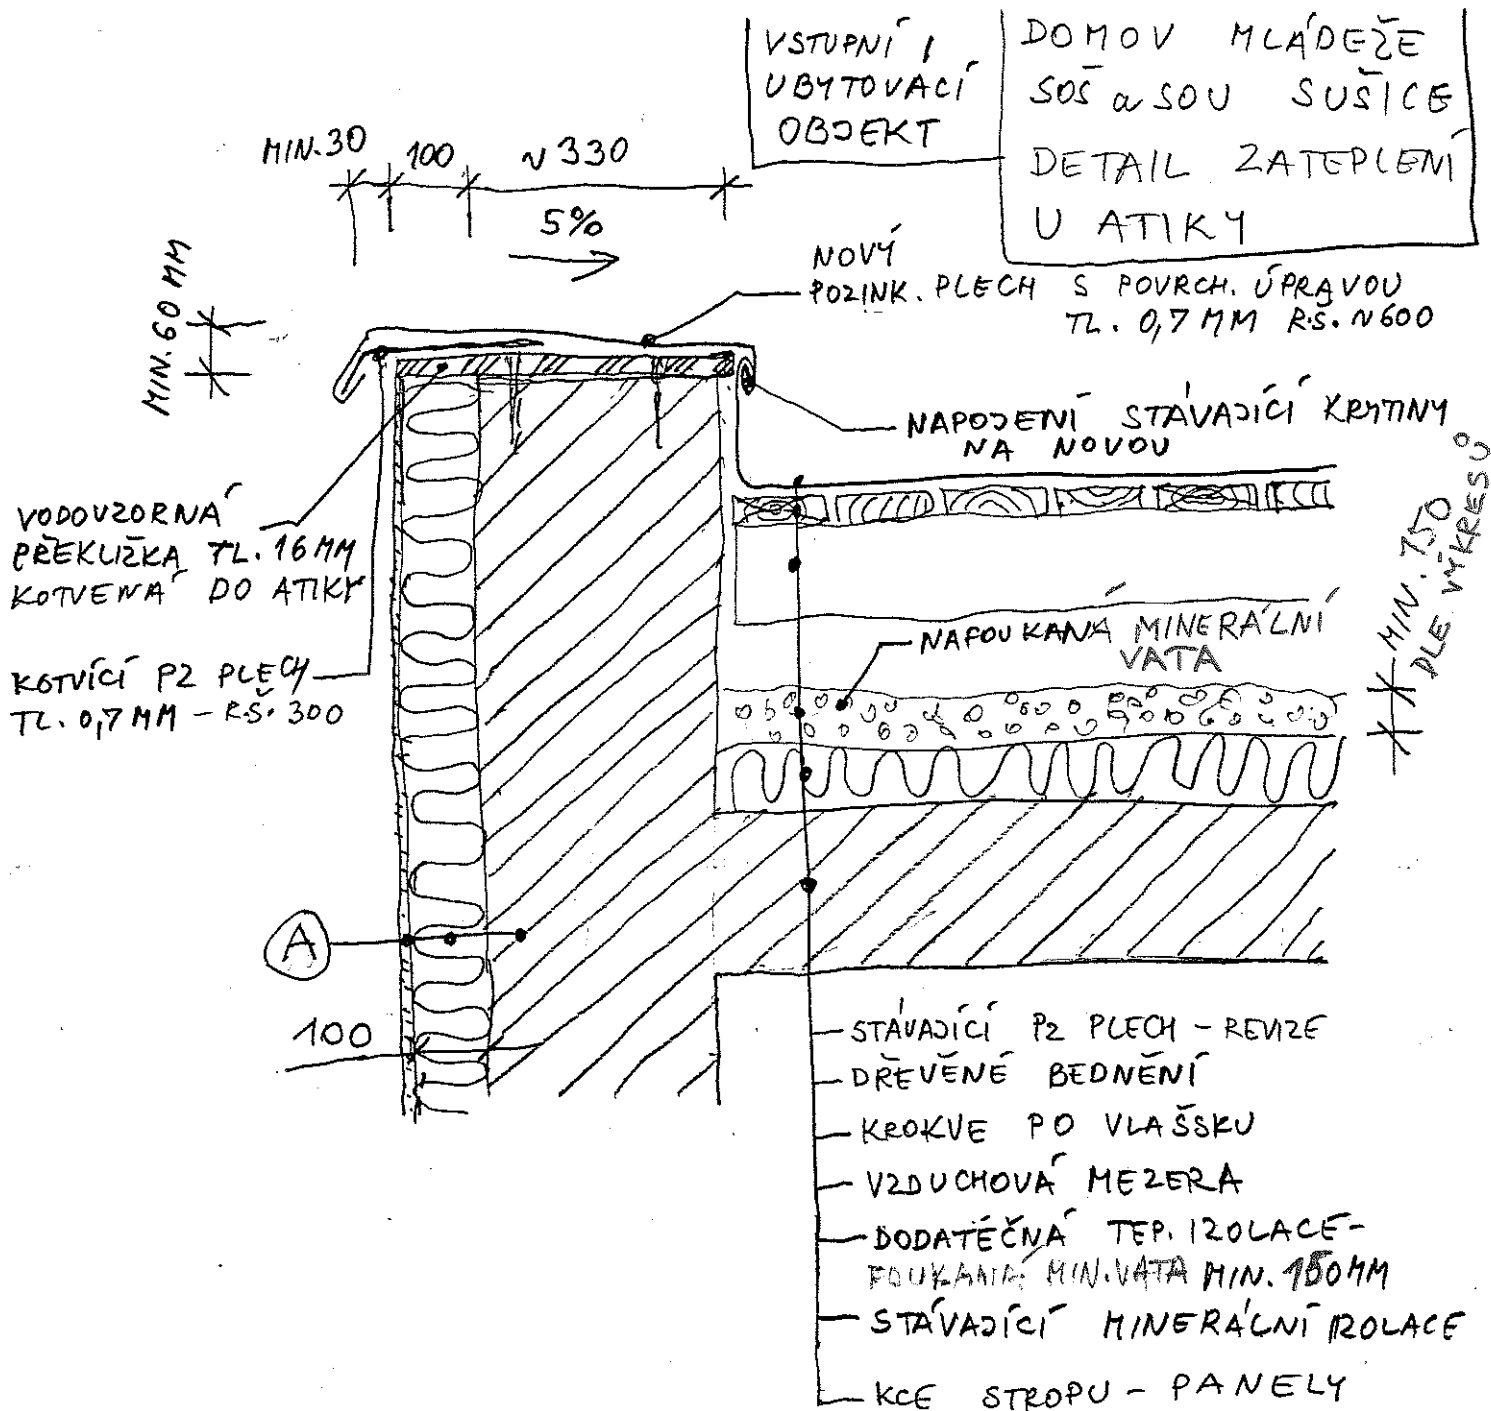 VSTUPNÍ,
UBYTOVACÍ
OBJEKT
DOMOV MLÁDEŽE
SOŠ a SOU SUŠICE
DETAIL ZATEPLENÍ
U ATIKY
MIN. 30
100
~ 330
5%
MIN. 60 MM
NOVÝ
POZINK. PLECH S POVRCH. ÚPRAVOU
TL. 0,7 MM R.Š. ~600
NAPOJENÍ STÁVAJÍCÍ KRYTINY
NA NOVOU
VODOVZORNÁ
PŘEKLIŽKA TL. 16 MM
KOTVENÁ DO ATIKY
KOTVÍCÍ PZ PLECH
TL. 0,7 MM - R.Š. 300
NAFOUKANÁ MINERÁLNÍ
VATA
MIN. 150
DLE VÝKRESŮ
A
100
STÁVAJÍCÍ PZ PLECH - REVIZE
DŘEVĚNÉ BEDNĚNÍ
KROKVE PO VLAŠSKU
VZDUCHOVÁ MEZERA
DODATEČNÁ TEP. IZOLACE-
FOUKANÁ MIN. VATA MIN. 150 MM
STÁVAJÍCÍ MINERÁLNÍ IZOLACE
KCE STROPU - PANELY